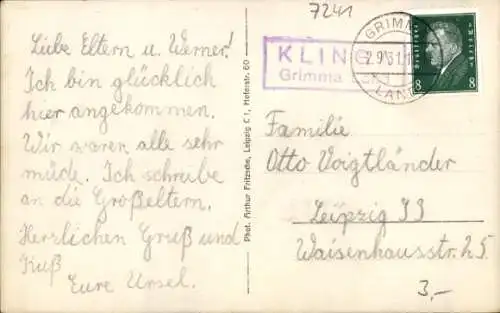 7241
Liebe Eltern u. Werner!
Ich bin glücklich
hier angekommen.
Wir waren alle sehr
müde. Ich schreibe
an die Großeltern.
Herzlichen Gruß und
Kuß
Eure Ursel.
Phot. Arthur Fritzsche, Leipzig C 1, Hoferstr. 60
KLING
Grimma
GRIMM
2.9.31.1
LAND
8 8
Familie
Otto Voigtländer
Leipzig
Waisenhausstr. 25
3,-